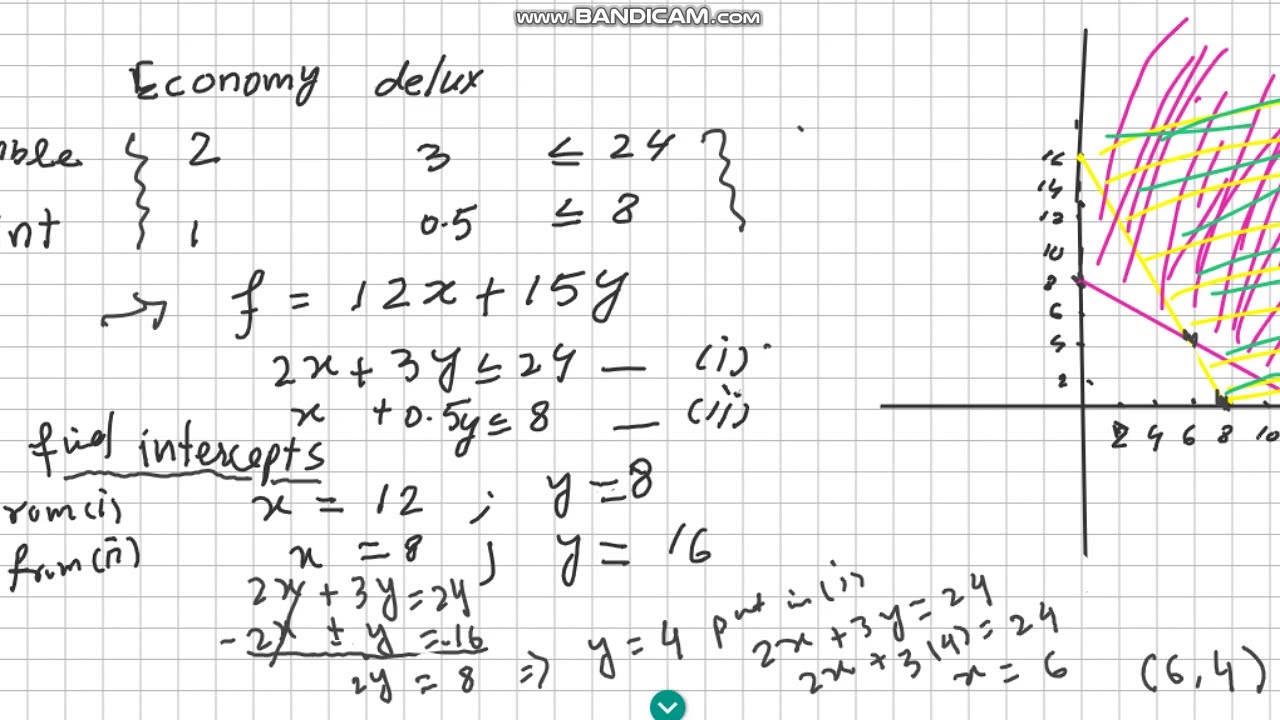 www.BANDICAM.com
Economy delux
mble { 2 3 ≤ 24 }
int 1 0.5 ≤ 8
→ f = 12x + 15y
2x + 3y ≤ 24 — (i)
x + 0.5y ≤ 8 — (ii)
find intercepts
rom (i) x = 12 ; y = 8
from (ii) x = 8 ; y = 16
2x + 3y = 24
- 2x ± y = -16
2y = 8 ⇒ y = 4 put in (i)
2x + 3y = 24
2x + 3(4) = 24
x = 6 (6,4)
16
14
12
10
8
6
2
2 4 6 8 10